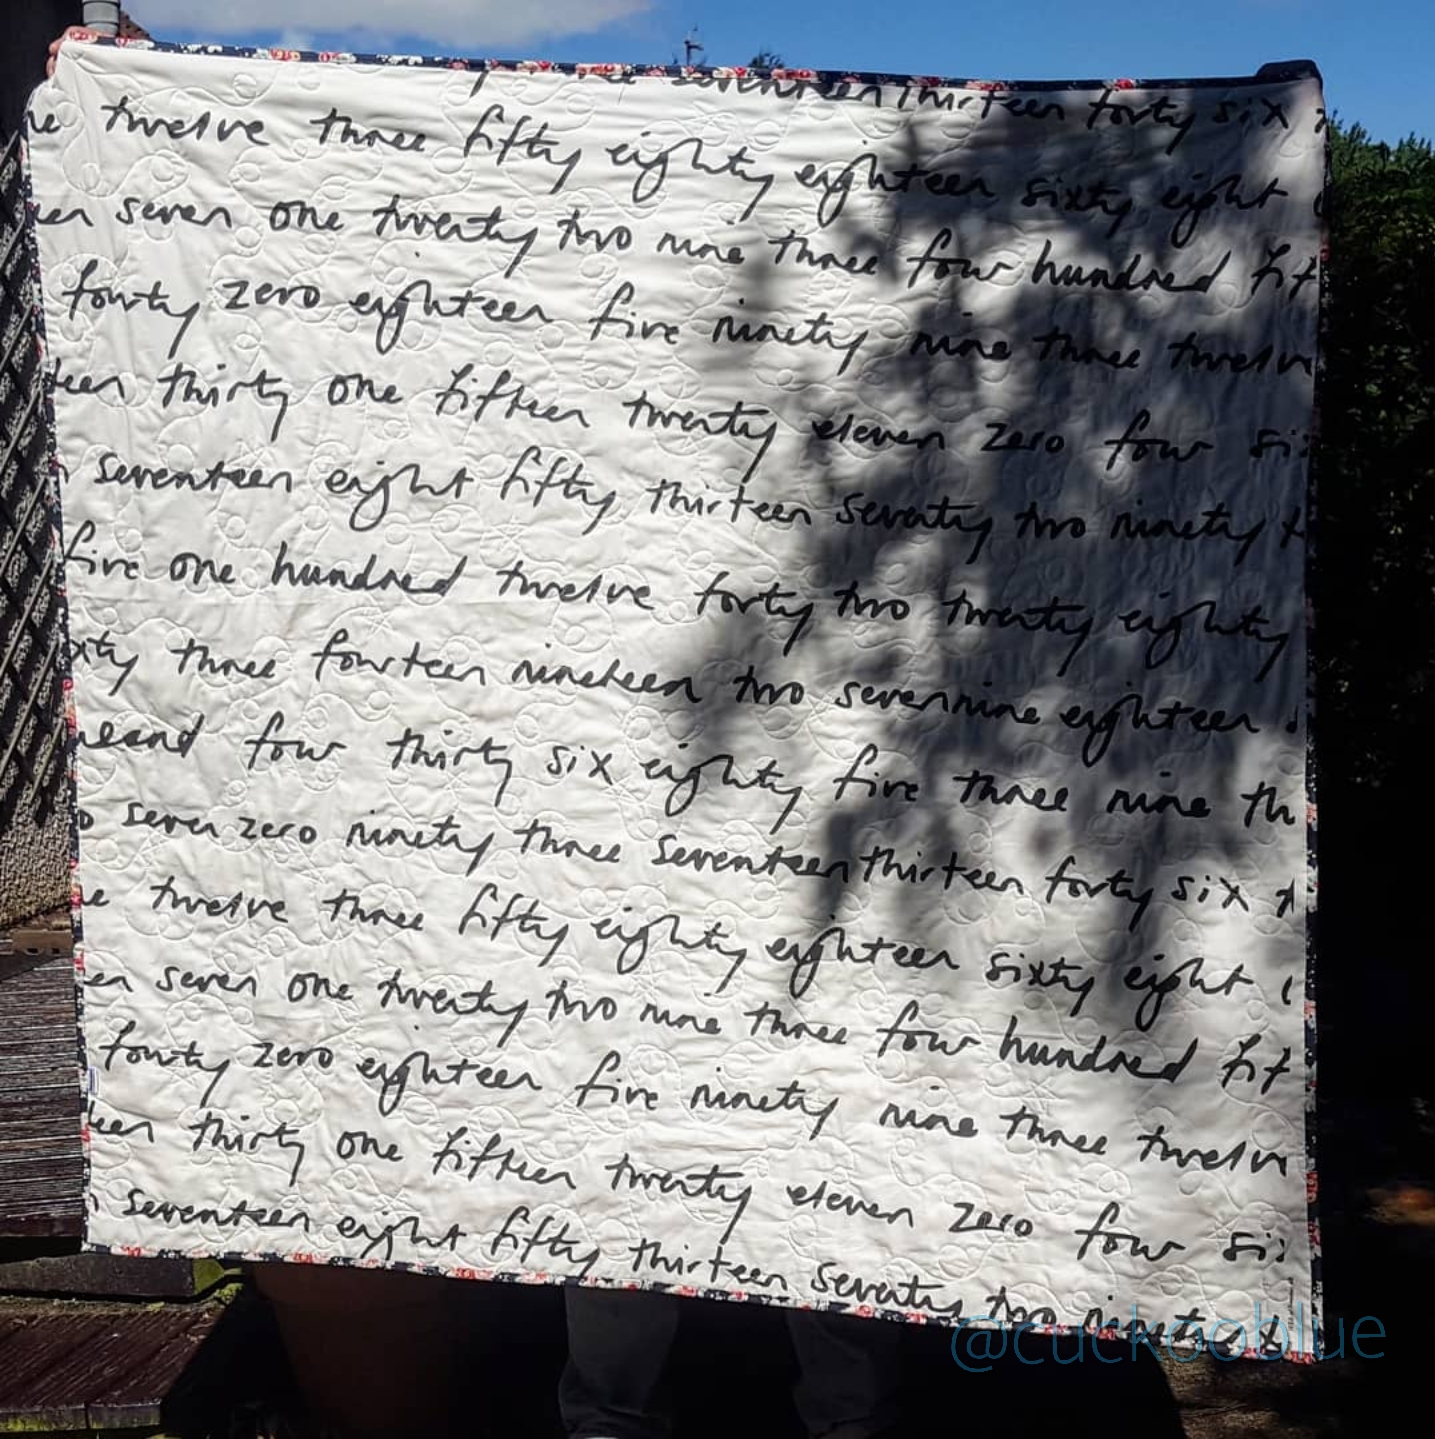 seventeen thirteen forty six
twelve three fifty eighty eighteen sixty eight
seven one twenty two nine three four hundred fif
fourty zero eighteen five ninety nine three twelv
teen thirty one fifteen twenty eleven zero four si
seventeen eight fifty thirteen seventy two ninety t
five one hundred twelve forty two twenty eighty
xty three fourteen nineteen two seven nine eighteen
four thirty six eighty five three nine th
o seven zero ninety three seventeen thirteen forty six
e twelve three fifty eighty eighteen sixty eight
en seven one twenty two nine three four hundred fif
fourty zero eighteen five ninety nine three twelv
teen thirty one fifteen twenty eleven zero four si
seventeen eight fifty thirteen seventy two ninety
@cuckooblue